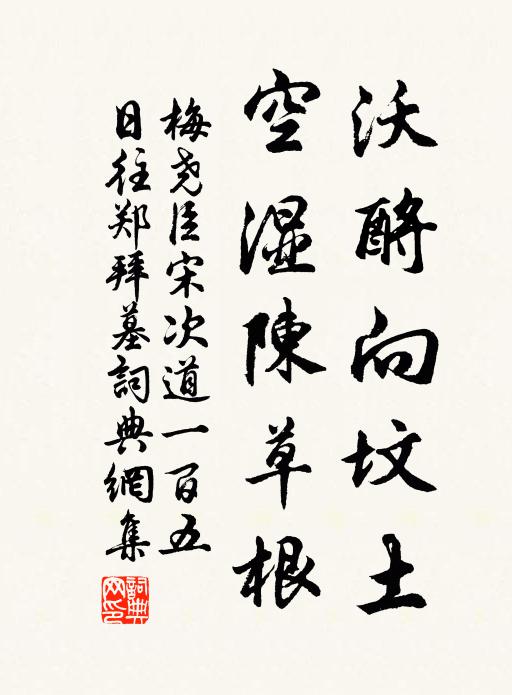 沃酹向坟土
空湿陳草根
梅尧臣宋次道一百五
日往郑拜墓詞典網集
詞典网印